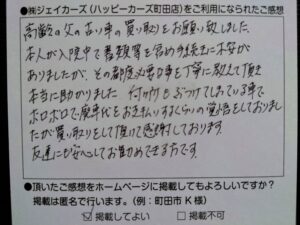 ●㈱ジェイカーズ(ハッピーカーズ町田店)をご利用になられたご感想
高齢の父の古い車の買い取りをお願い致しました。
本人が入院中で書類等を含め手続きに不安が
ありましたが、その都度必要事を丁寧に教えて頂き
本当に助かりました。何カ所もぶつけてしまっている車で
ボロボロで廃車代をお支払いするくらいの覚悟をしておりまし
たが買い取りをして頂けて感謝しております。
友達にも安心してお勧めできる方です。
●頂いたご感想をホームページに掲載してもよろしいですか?
掲載は匿名で行います。(例:町田市 K 様)
☑ 掲載してよい □ 掲載不可